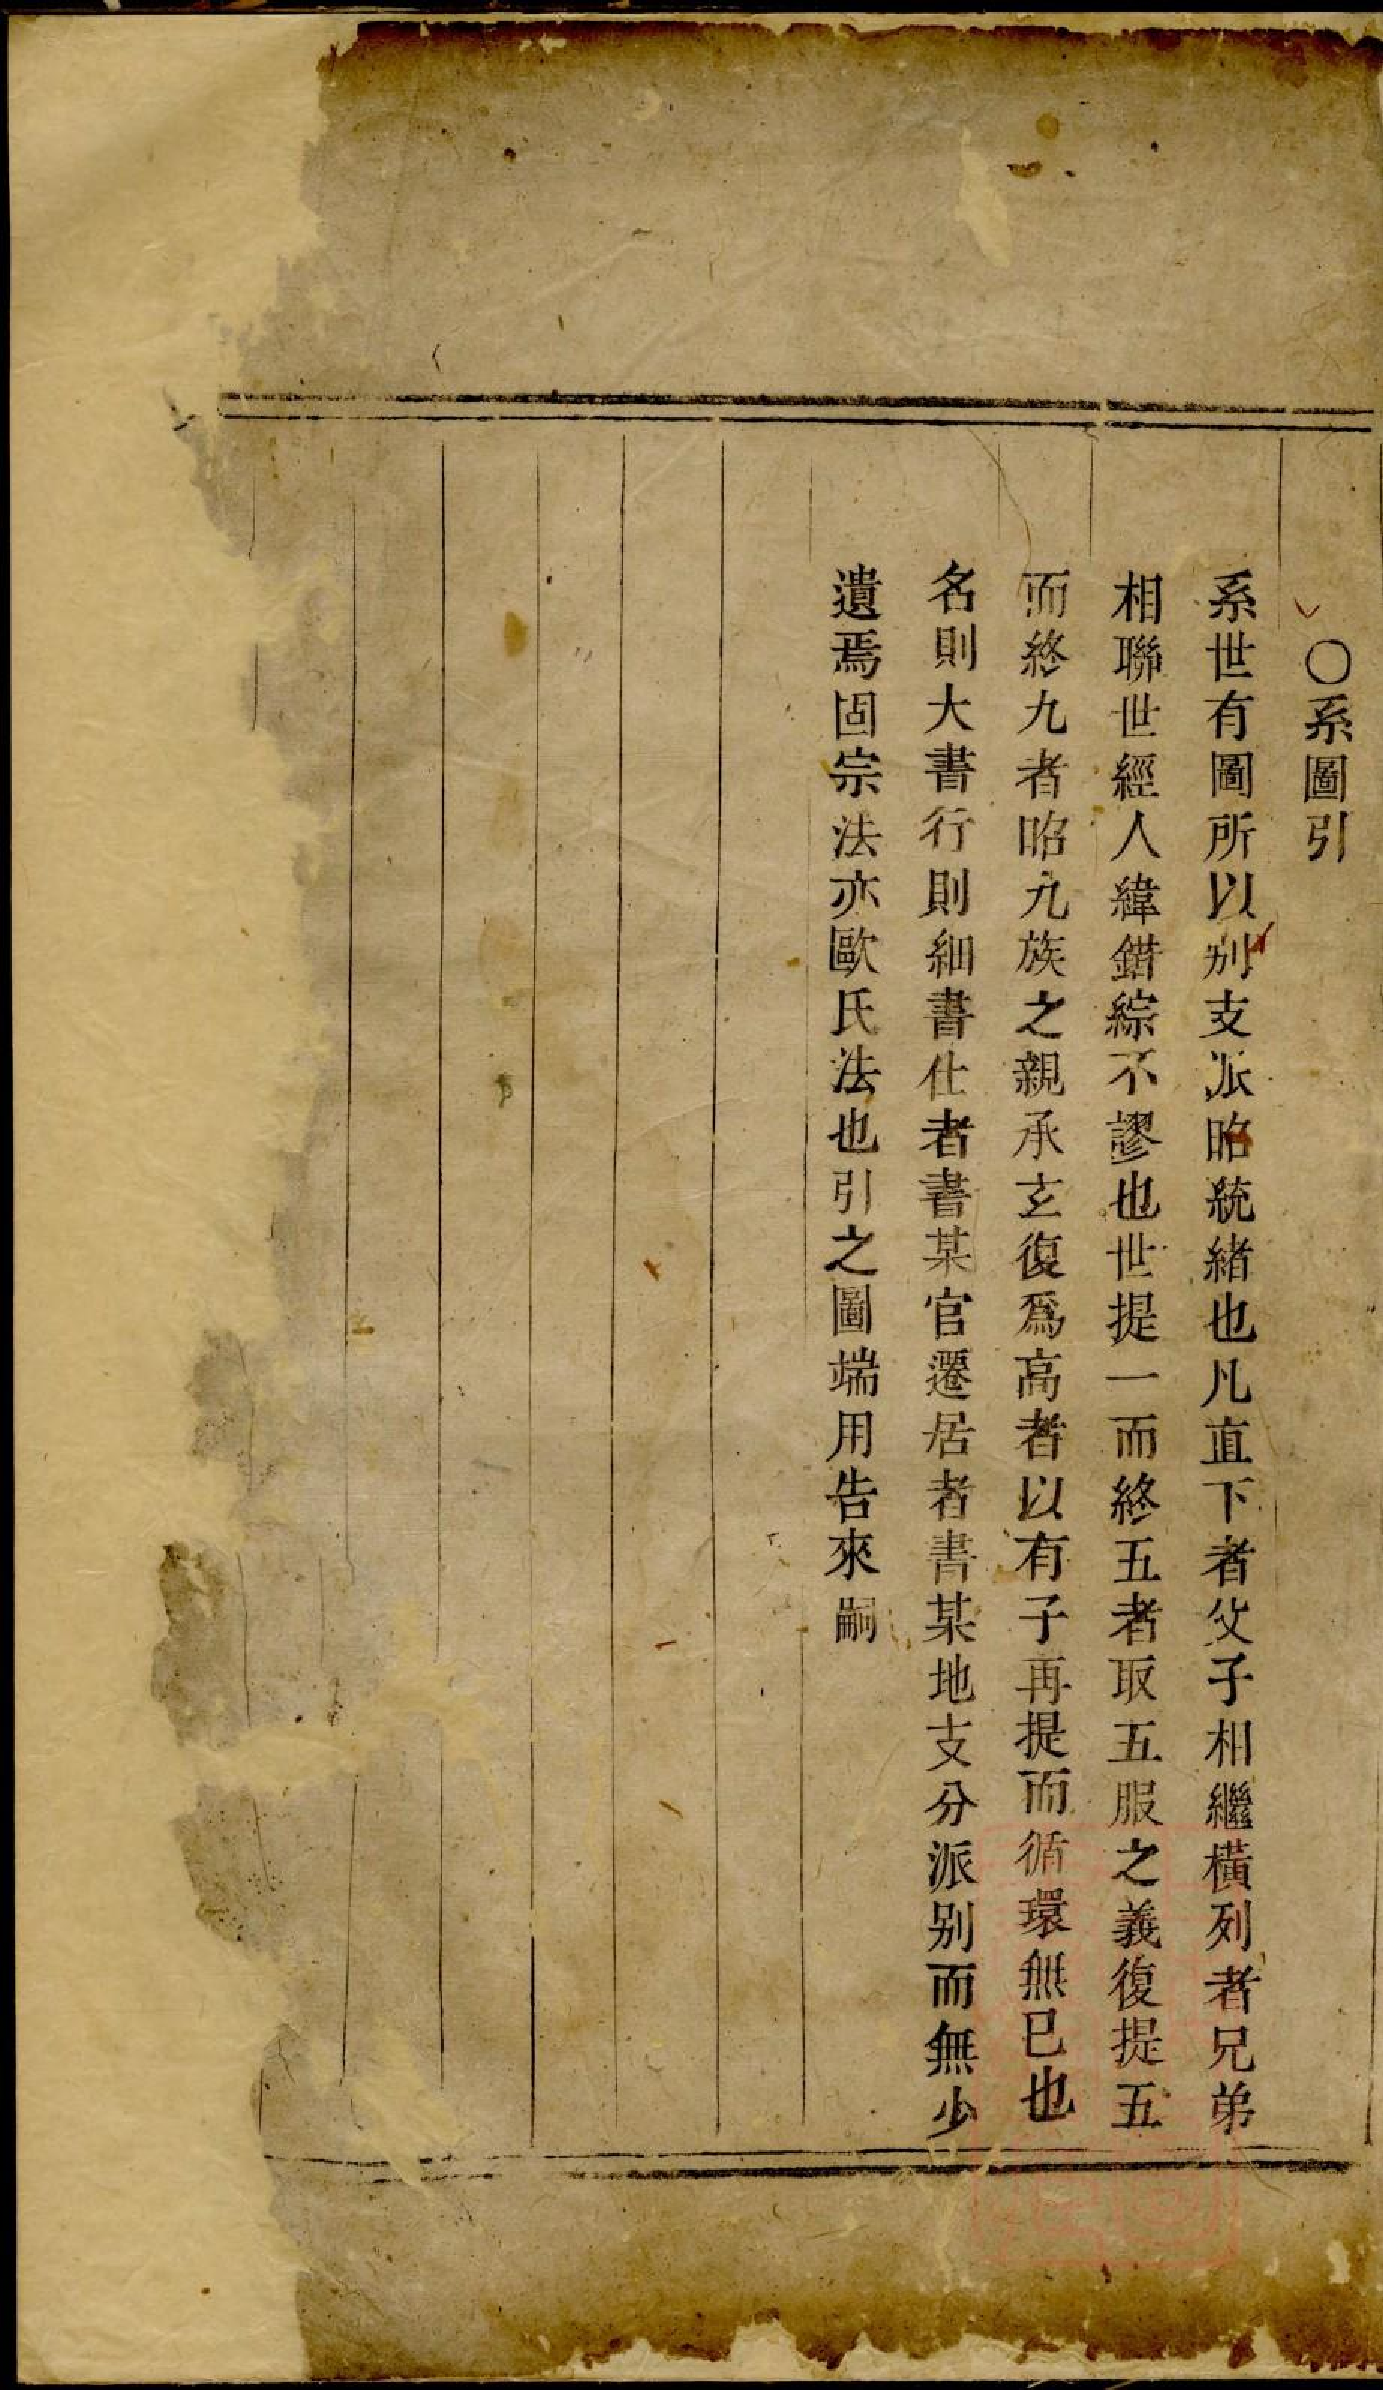 ○系圖引
系世有圖所以别支派昭統緒也凡直下者父子相繼橫列者兄弟
相聯世經人緯錯綜不謬也世提一而終五者取五服之義復提五
而終九者昭九族之親承玄復爲高者以有子再提而循環無已也
名則大書行則細書仕者書某官遷居者書某地支分派别而無少
遺焉固宗法亦歐氏法也引之圖端用告來嗣